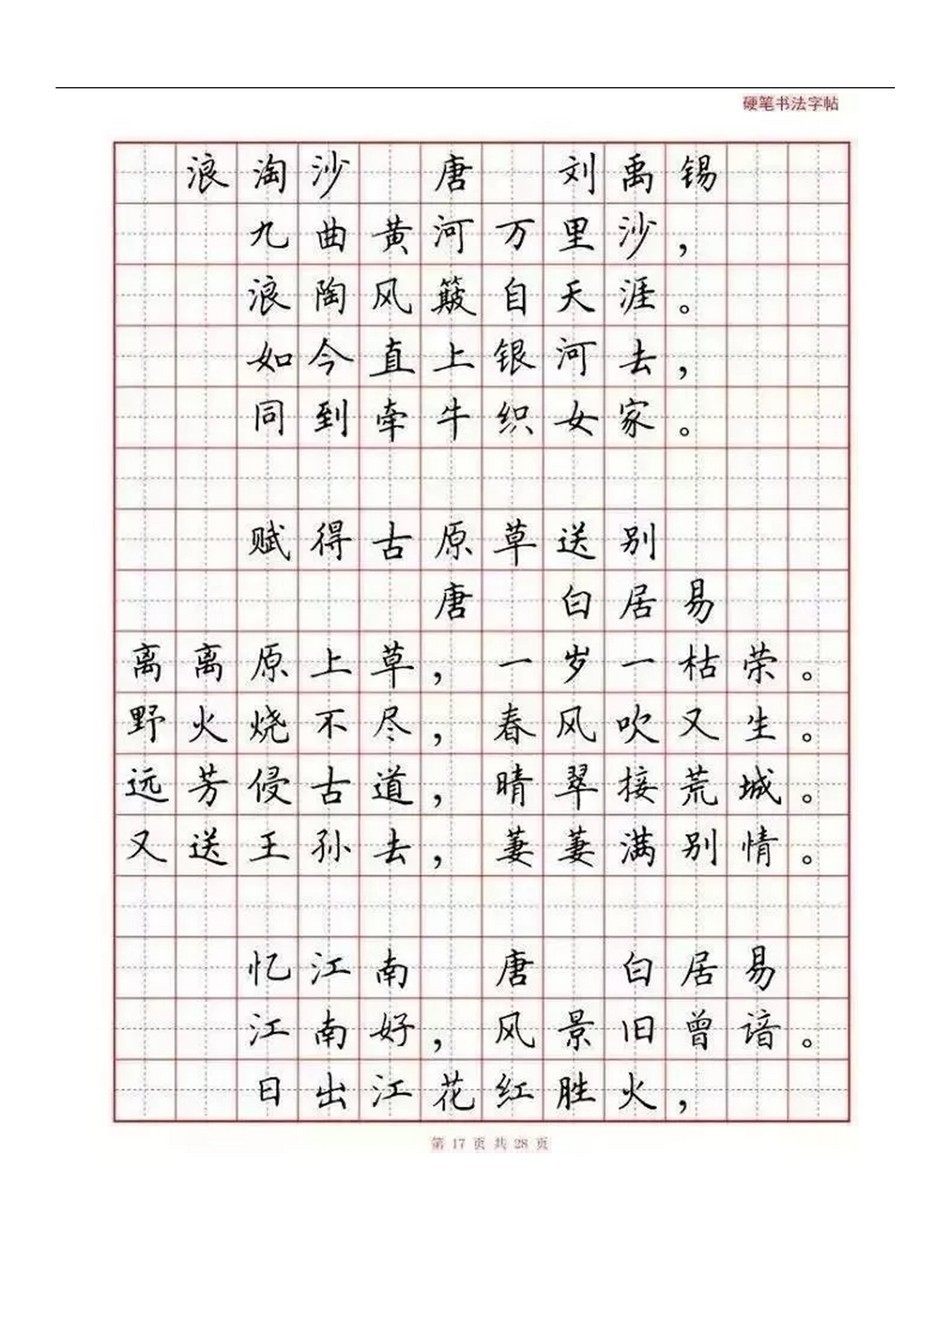 硬笔书法字帖
浪淘沙 唐 刘禹锡
九曲黄河万里沙，
浪陶风簸自天涯。
如今直上银河去，
同到牵牛织女家。
赋得古原草送别
唐 白居易
离离原上草，一岁一枯荣。
野火烧不尽，春风吹又生。
远芳侵古道，晴翠接荒城。
又送王孙去，萋萋满别情。
忆江南 唐 白居易
江南好，风景旧曾谙。
日出江花红胜火，
第 17 页 共 28 页